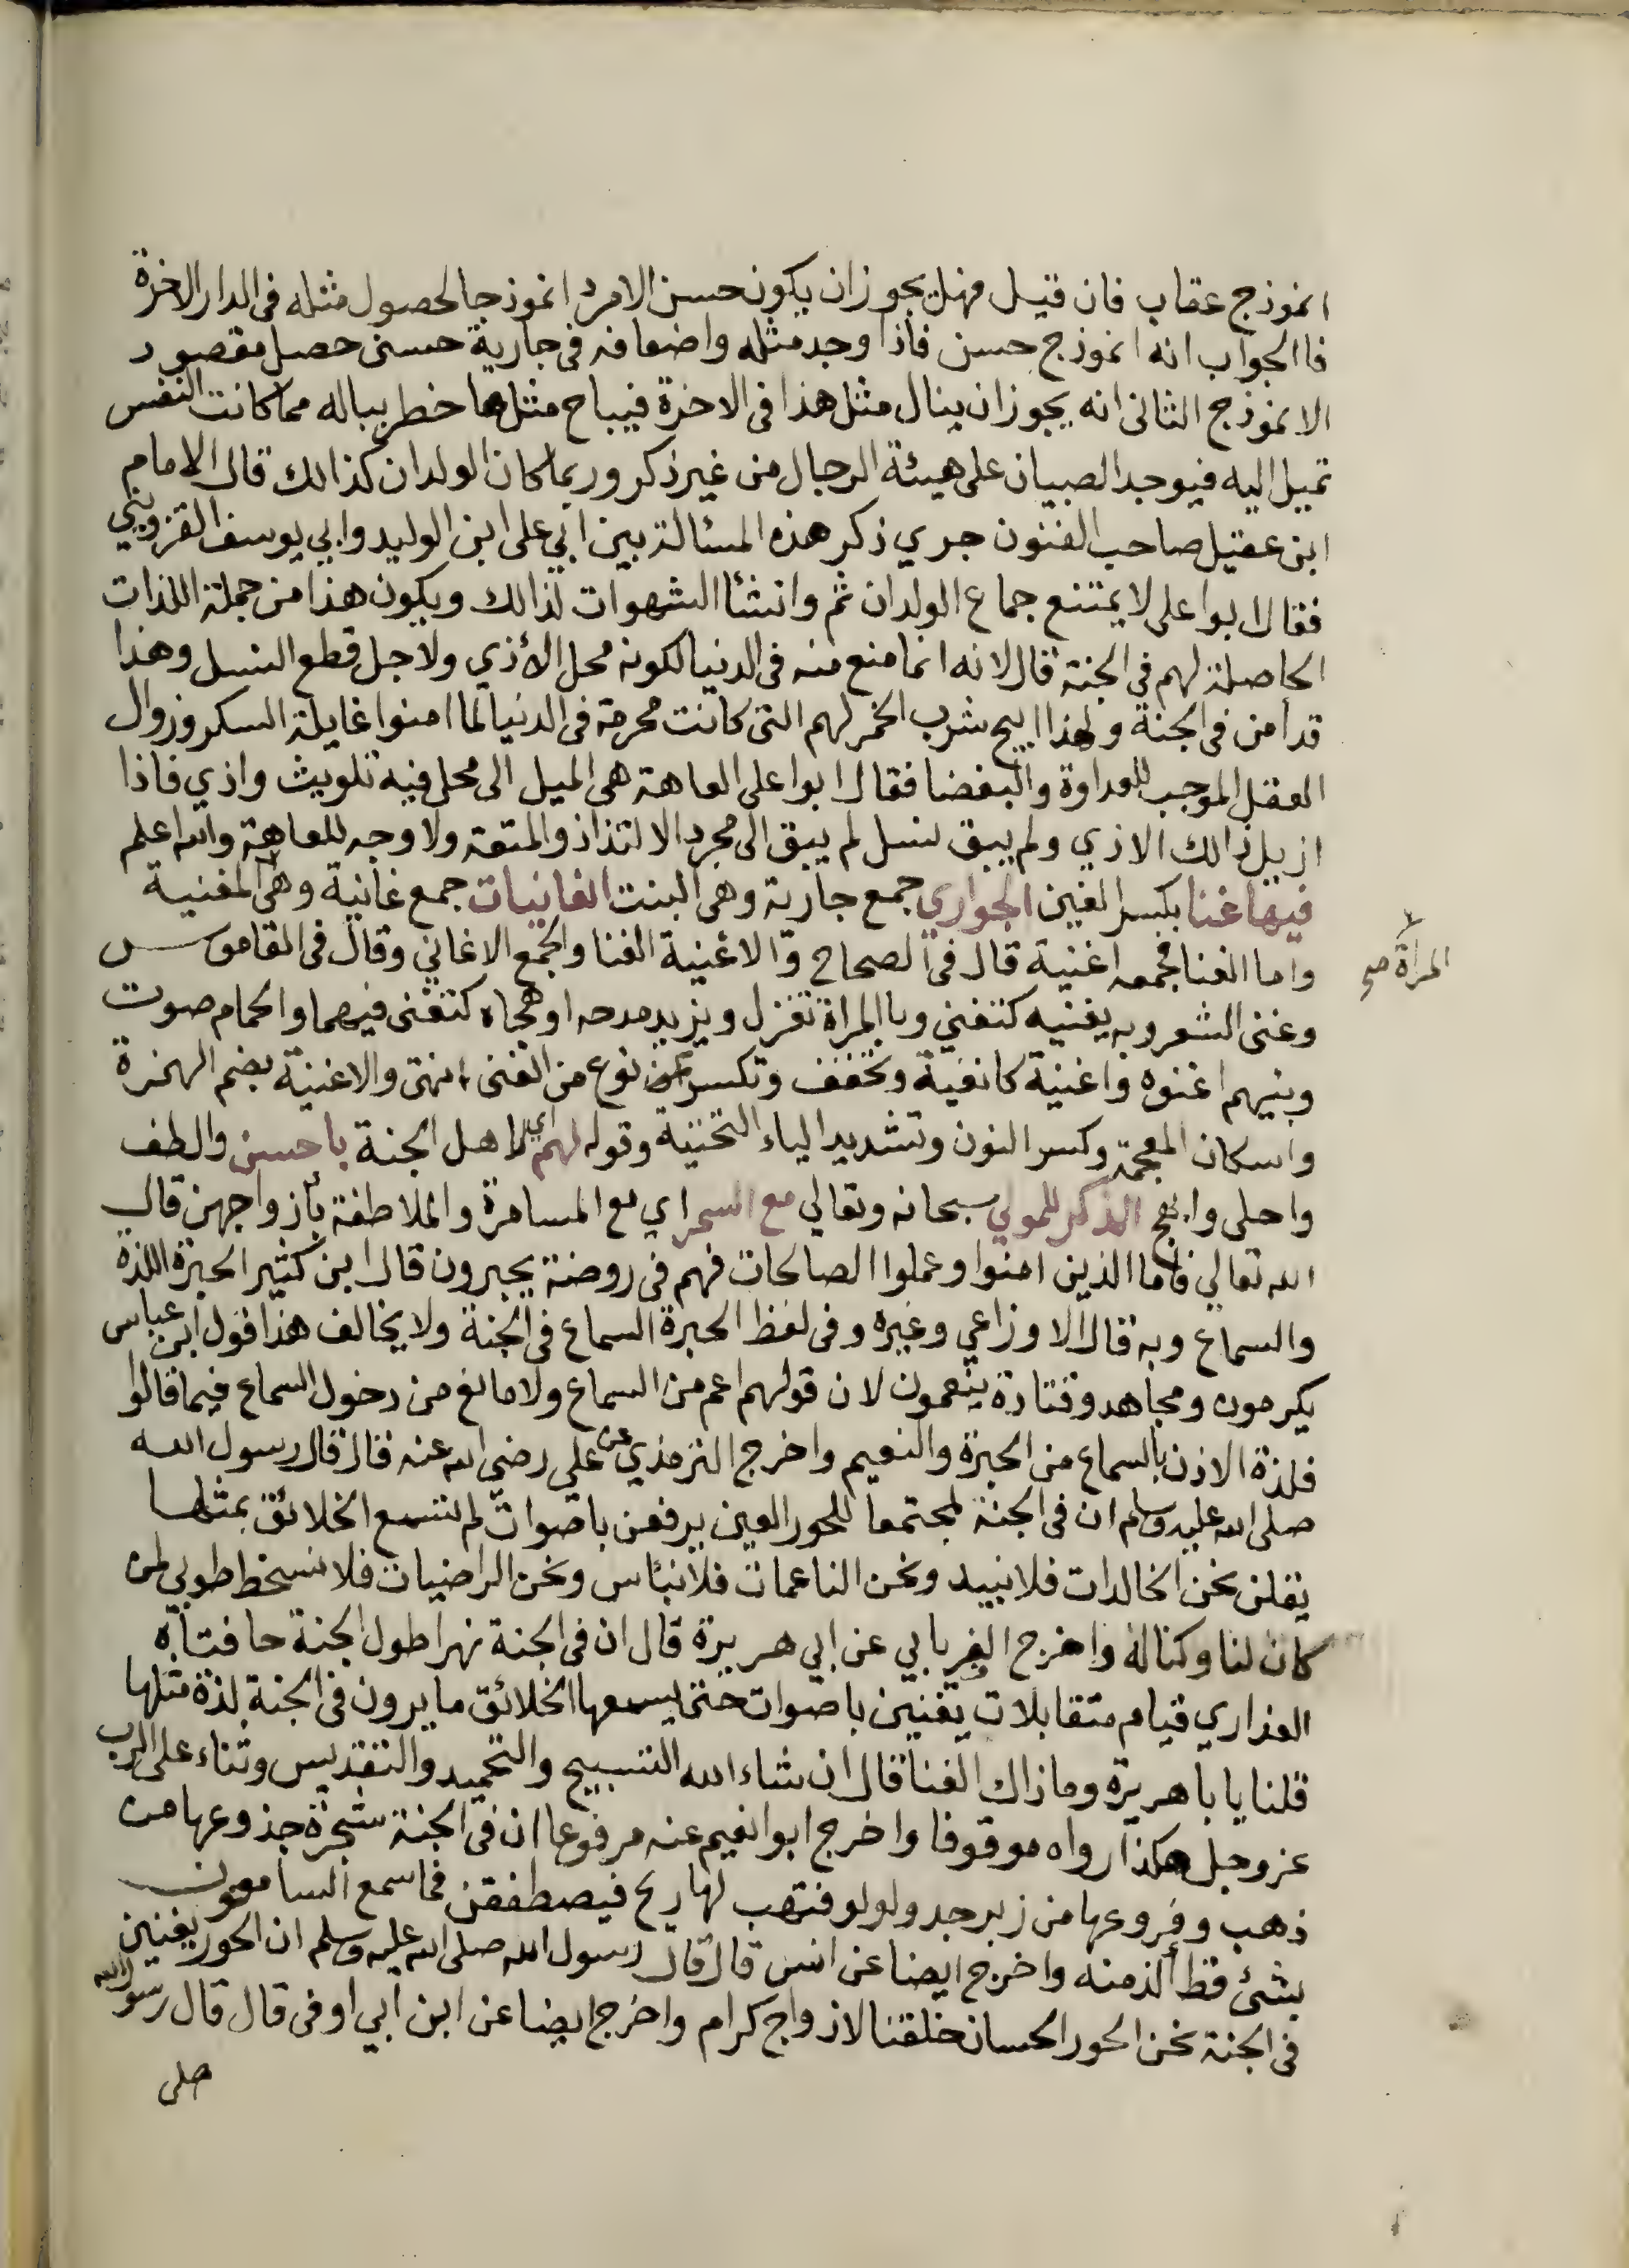 انموذج عقاب فان قيل فهل يجوز ان يكون حسن الامرد انموذجا لحصول مثله في الدار الاخرة
فا الجواب انه انموذج حسن فاذا وجد مثله واضعافه في جارية حسنى حصل مقصود
الانموذج الثاني انه يجوز ان ينال مثل هذا في الاخرة فيباح مثل ما خطر بباله مما كانت النفس
تميل اليه فيوجد الصبيان على هيئة الرجال من غير ذكر وربما كان الولدان كذالك قال الامام
ابن عقيل صاحب الفنون جري ذكر هذه المسئالة بين ابي على ابن الوليد وابي يوسف القزويني
فقال ابوا على لا يمتنع جماع الولدان ثم وانشئا الشهوات لذالك ويكون هذا من جملة اللذات
الحاصلة لهم في الجنة قال لانه انما منع منه في الدنيا لكونه محل الأذي ولاجل قطع النسل وهذا
قد امن في الجنة ولهذا ابيح شرب الخمر لهم التي كانت محرمة في الدنيا لما امنوا غايلة السكر وزوال
العقل الموجب للعداوة والبغضا فقال ابوا على العاهة هي الميل الى محل فيه تلويث واذي فاذا
ازيل ذالك الاذي ولم يبق نسل لم يبق الى مجرد الالتذاذ والمتعة ولا وجه للعاهة والله اعلم
فيها غنا بكسر الغين الجواري جمع جارية وهى البنت الغانيات جمع غانية وهى المغنية
واما الغنا فجمعه اغنية قال في الصحاح والاغنية الغنا والجمع الاغاني وقال في القاموس
المرأة صح
وغنى الشعر وبه يغنيه كتغني وبا المراة تغزل ويزيد مدحه او هجاه كتغنى فيهما والحمام صوت
وبنيهم اغنوه واغنية كاثفية وتخفف وتكسر نوع من الغنى انتهى والاغنية بضم الهمزة
واسكان المعجمة وكسر النون وتشديد الياء التحتية وقوله لهم اي لاهل الجنة باحسن والطف
واحلى وابهج الذكر للمولي سبحانه وتعالي مع السمر اي مع المسامرة والملاطفة بأزواجهن قال
الله تعالي فأما الذين امنوا وعملوا الصالحات فهم في روضة يحبرون قال ابن كثير الحبرة اللذة
والسماع وبه قال الاوزاعي وغيره وفي لفظ الحبرة السماع في الجنة ولا يخالف هذا قول ابن عباس
يكرمون ومجاهد وقتادة ينعمون لان قولهم اعم من السماع ولا مانع من دخول السماع فيما قالوا
فلذة الاذن بالسماع من الحبرة والنعيم واخرج الترمذي عن على رضي الله عنه قال قال رسول الله
صلى الله عليه وسلم ان في الجنة لمجتمعا للحور العين يرفعن باصوات لم تسمع الخلائق بمثلها
يقلن نحن الخالدات فلا نبيد ونحن الناعمات فلا نبئاس ونحن الراضيات فلا نسخط طوبي لمن
كان لنا وكنا له واخرج الفريابي عن ابي هريرة قال ان في الجنة نهرا طول الجنة حافتاه
العذاري قيام متقابلات يغنين باصوات حتى يسمعها الخلائق ما يرون في الجنة لذة مثلها
قلنا يا باهريرة وماذاك الغنا قال ان شاء الله التسبيح والتحميد والتقديس وثناء على الرب
عز وجل هكذا رواه موقوفا واخرج ابوا نعيم عنه مرفوعا ان في الجنة شجرة جذوعها من
ذهب وفروعها من زبرجد ولولو فتهب لها ريح فيصطفقن فما سمع السامعون
بشئ قط ألذ منه واخرج ايضا عن انس قال قال رسول الله صلى الله عليه وسلم ان الحور يغنين
في الجنة نحن الحور الحسان خلقنا لازواج كرام واخرج ايضا عن ابن ابي اوفى قال قال رسول الله
صلى